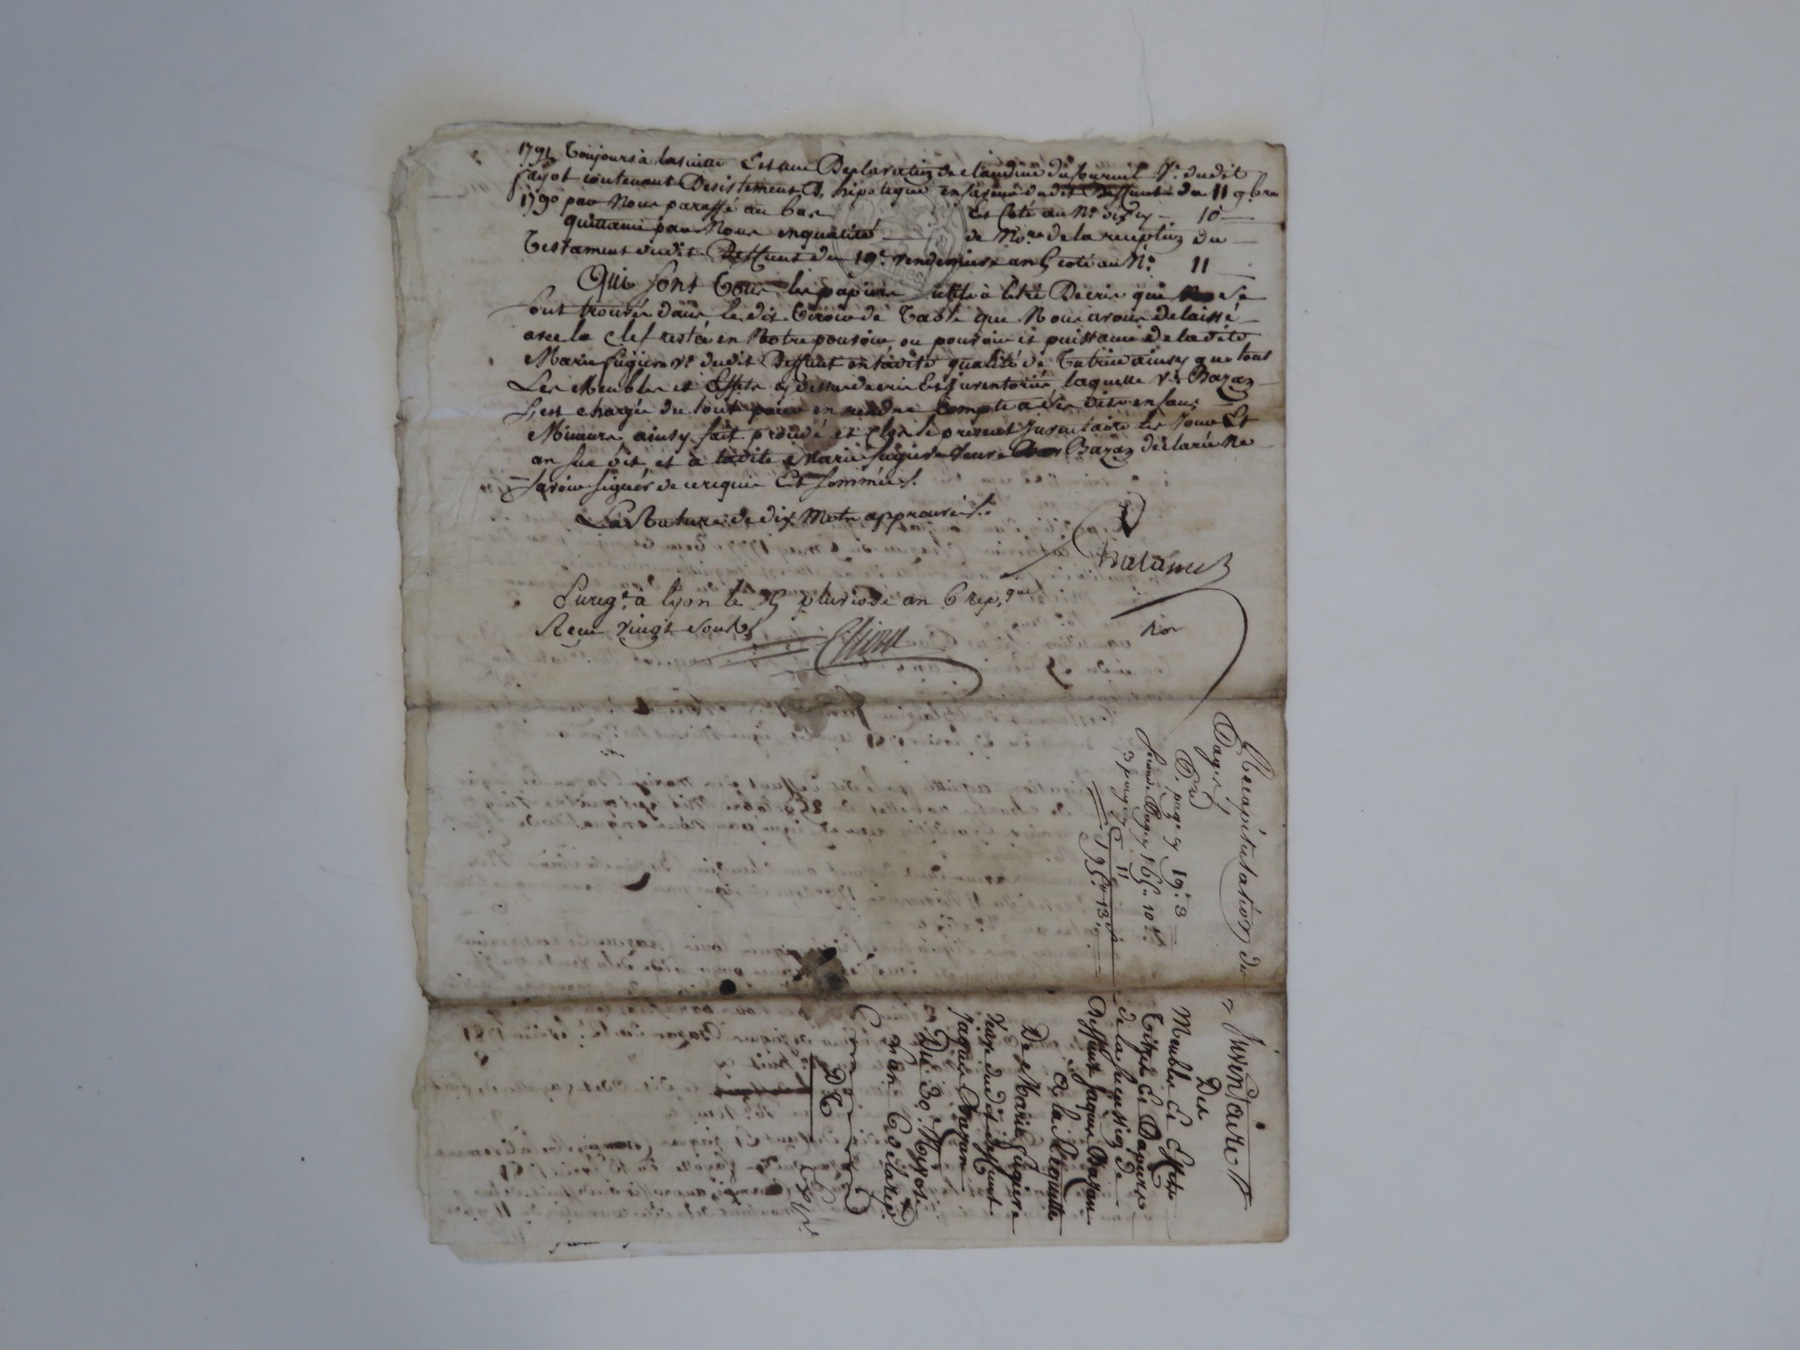 1791 Toujours à la suitte Est une Declaration de claudine du fournel Ve. dudit
fayot contenant Desistement D, hipoteque en faveur dudit Deffunt du 11 9.bre
1790 par Nous paraffé au bas Et Coté au No. dix cy — 10 —
quittance par Nous en qualité de Nore. de la reception du —
Testament dudit Deffunt du 19e. Vendemiere an 5 coté au No. 11 —
Qui sont Tous les papiers utile à être Decris qui se
sont trouvés dans le dit tiroir de Table que Nous avons delaissé
avec la Clef restée en Notre pouvoir ou pouvoir et puissance de la dite
Marie fugiere Ve. dudit Deffunt en ladite qualité de Tutrice ainsy que tout
Les Meubles et Effets cy dessus decris Et inventoriés, laquelle Ve. Bazan
s'est chargée du tout pour en rendre Compte à ses dits enfans
Mineurs, ainsy fait procedé et Clos le present Inventaire les Jour Et
an sus dit et a ladite Marie fugiere Veuve Bazan declaré Ne
savoir signer de ce requise Et sommée.
La Rature de dix Mots approuvés.
Nore
Enregé. à lyon le 5 pluviose an 6 rep.que
Reçu vingt sous
Recapitulation de
Pages
P.re page cy 19.. 3 —
seconde Page cy 165.. 10
3 page cy 11
195.. 13
Inventaire
Des
Meubles Et Effets
Titres Et Papiers
de la succession de
Deffunt Jaque Bazan
à la Requette
De Marie fugiere
Veuve dudit deffunt
Jaques Bazan
Du 30. Nivose
an 6 de la rep.